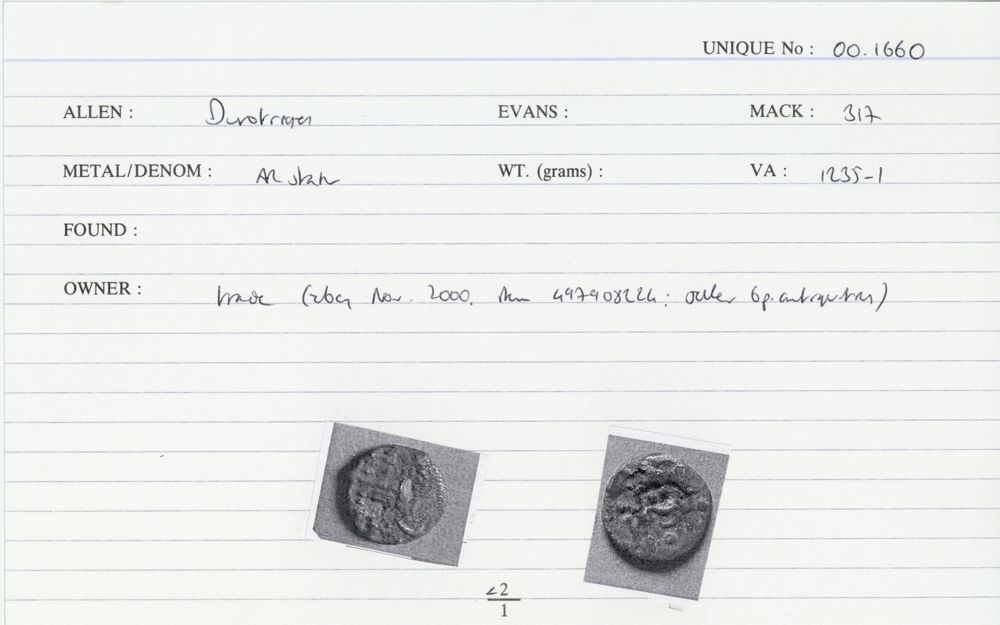 UNIQUE No : 00.1660
ALLEN : Durotriges EVANS : MACK : 317
METAL/DENOM : AR stater WT. (grams) : VA : 1235-1
FOUND :
OWNER : trade (ebay Nov. 2000, item 497908224: seller bp.antiquities)
c2
1